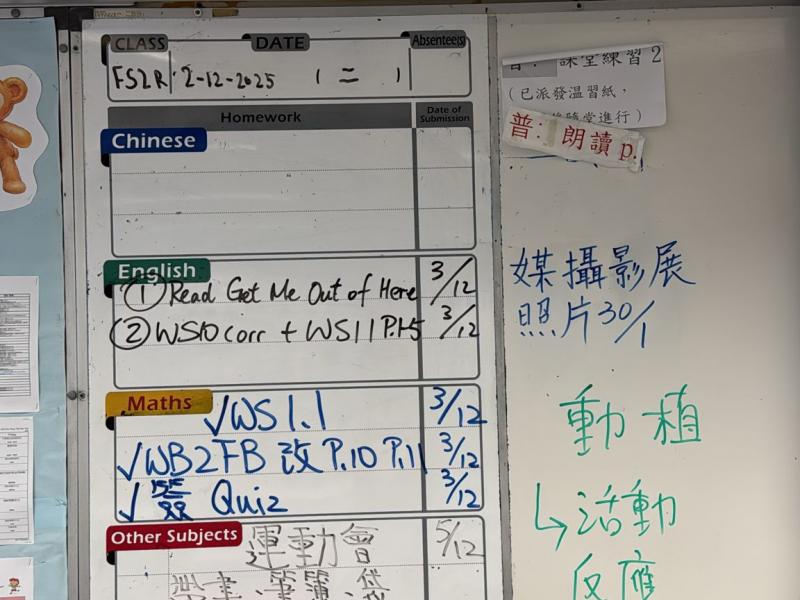 CLASS DATE Absentee(s)
FS2R 2-12-2025
Homework Date of Submission
Chinese
English
① Read Get Me Out of Here 3/12
② WS10 corr + WS11 P.1-5 3/12
Maths
✓WS 1.1 3/12
✓WB2FB 改 P.10 P.11 3/12
✓ 簽 Quiz 3/12
Other Subjects
運動會 5/12
課堂練習 2
(已派發溫習紙,
隨堂進行)
普: 朗讀 p.
媒攝影展
照片 30/1
動植
↳活動
反應